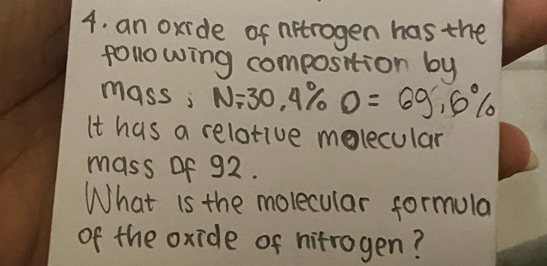 4. an oxide of nitrogen has the
following composition by
mass ; N=30,4% O = 69,6%
It has a relative molecular
mass of 92.
What is the molecular formula
of the oxide of nitrogen?